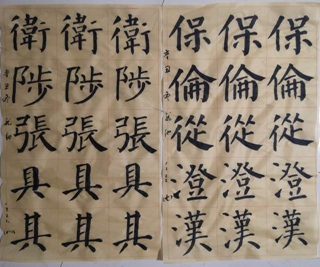 保倫從澄漢
保倫從澄漢
保倫從澄漢
衛陟張具其
衛陟張具其
衛陟張具其